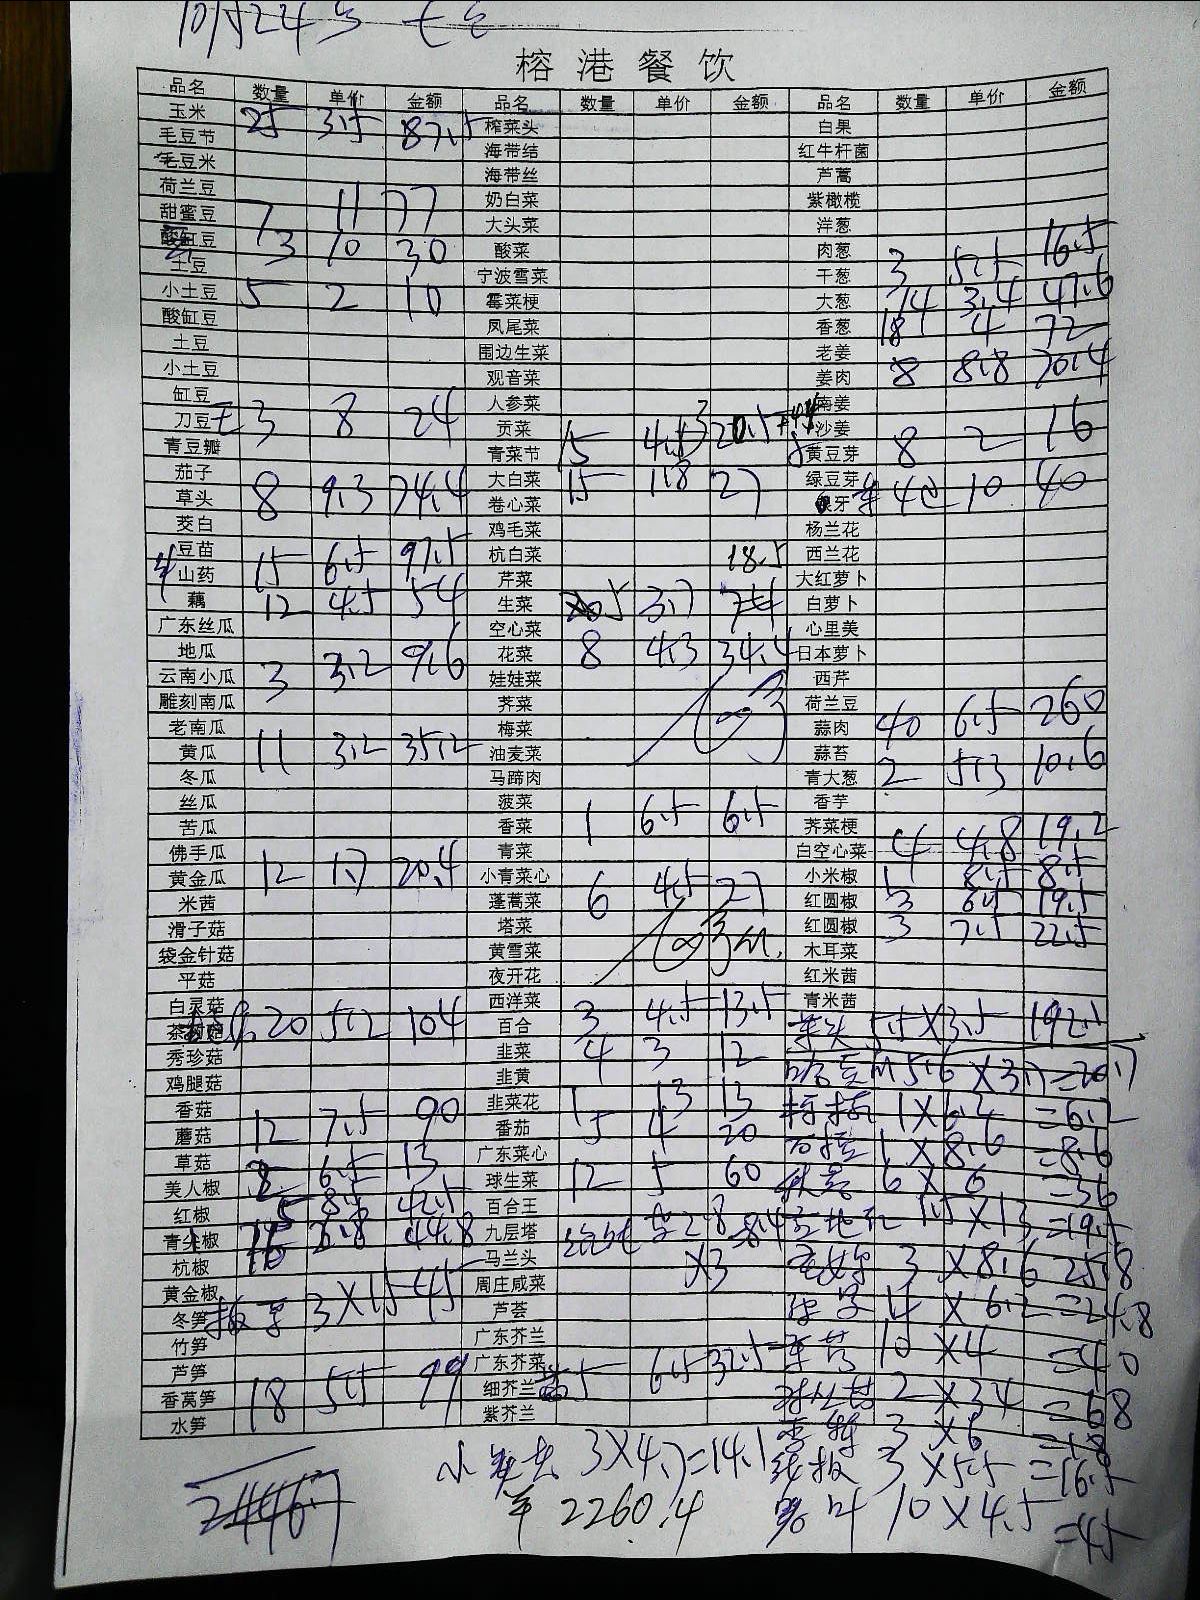 10月24号
榕港餐饮
品名 数量 单价 金额 品名 数量 单价 金额 品名 数量 单价 金额
玉米 25 3.5 87.5 榨菜头 白果
毛豆节 海带结 红牛杆菌
毛豆米 海带丝 芦蒿
荷兰豆 奶白菜 紫橄榄
甜蜜豆 7 11 77 大头菜 洋葱
酸缸豆 3 10 30 酸菜 肉葱 3 5.5 16.5
土豆 宁波雪菜 干葱
小土豆 5 2 10 霉菜梗 大葱 14 3.4 47.6
酸缸豆 凤尾菜 香葱 18 4 72
土豆 围边生菜 老姜
小土豆 观音菜 姜肉 8 8.8 70.4
缸豆 人参菜 南姜
刀豆 3 8 24 贡菜 沙姜
青豆瓣 青菜节 15 4.5 黄豆芽 8 2 16
茄子 大白菜 15 1.8 27 绿豆芽
草头 8 9.3 74.4 卷心菜 银牙 4 10 40
茭白 鸡毛菜 杨兰花
豆苗 杭白菜 18.5 西兰花
山药 15 6.5 97.5 芹菜 大红萝卜
藕 12 4.5 54 生菜 5 3.7 白萝卜
广东丝瓜 空心菜 心里美
地瓜 花菜 8 4.3 34.4 日本萝卜
云南小瓜 3 3.2 9.6 娃娃菜 西芹
雕刻南瓜 荠菜 荷兰豆
老南瓜 梅菜 蒜肉 40 6.5 260
黄瓜 11 3.2 35.2 油麦菜 蒜苔
冬瓜 马蹄肉 青大葱 2 5.3 10.6
丝瓜 菠菜 香芋
苦瓜 香菜 1 6.5 6.5 荠菜梗
佛手瓜 青菜 白空心菜 4 4.8 19.2
黄金瓜 12 1.7 20.4 小青菜心 小米椒 1 8.5 8.5
米茜 蓬蒿菜 6 4.5 27 红圆椒 3 6.5 19.5
滑子菇 塔菜 红圆椒 3 7.5 22.5
袋金针菇 黄雪菜 木耳菜
平菇 夜开花 红米茜
白灵菇 西洋菜 青米茜
茶树菇 20 5.2 104 百合 3 4.5 13.5 55×3.5 192.5
秀珍菇 韭菜 4 3 12
鸡腿菇 韭黄 5.6×3.7=20.7
香菇 韭菜花 1 13 13 1×6.2=6.2
蘑菇 12 7.5 90 番茄 5 4 20
草菇 广东菜心 1×8.6=8.6
美人椒 2 6.5 13 球生菜 12 5 60 6×6=36
红椒 5 8.5 42.5 百合王
青尖椒 16 2.8 44.8 九层塔 2.8×3 8.4 1.5×13=19.5
杭椒 马兰头 3×8.6 25.8
黄金椒 周庄咸菜
冬笋 3×15 45 芦荟 4×6.2=24.8
竹笋 广东芥兰 10×4=40
芦笋 广东芥菜
香莴笋 18 5.5 99 细芥兰 5 6.5 32.5 2×34=68
水笋 紫芥兰 3×6=18
小 3×4.7=14.1 3×5.5=16.5
2260.4 10×4.5=45